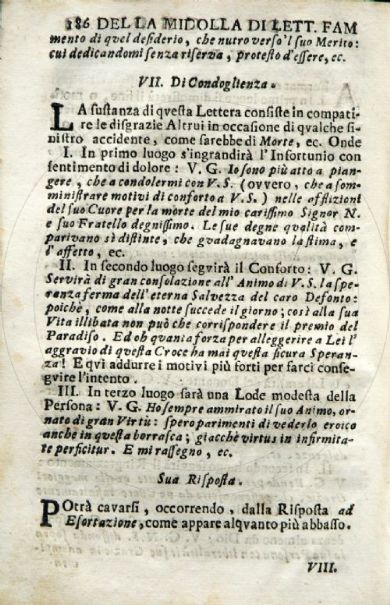 186 DELLA MIDOLLA DI LETT. FAM
mento di qvel desiderio, che nutro verso 'l suo Merito:
cui dedicandomi senza riserva, protesto d'essere, ec.
VII. Di Condoglienza.
LA sustanza di qvesta Lettera consiste in compati-
re le disgrazie Altrui in occasione di qvalche si-
nistro accidente, come sarebbe di Morte, ec. Onde
I. In primo luogo s'ingrandirà l'Infortunio con
sentimento di dolore: V. G. Io sono più atto a pian-
gere, che a condolermi con V. S. (ovvero, che a som-
ministrare motivi di conforto a V. S.) nelle afflizioni
del suo Cuore per la morte del mio carissimo Signor N.
e suo Fratello degnissimo. Le sue degne qvalità com-
parivano sì distinte, che gvadagnavano la stima, e
l'affetto, ec.
II. In secondo luogo segvirà il Conforto: V. G.
Servirà di gran consolazione all' Animo di V. S. la spe-
ranza ferma dell'eterna Salvezza del caro Defonto:
poichè, come alla notte succede il giorno; così alla sua
Vita illibata non può che corrispondere il premio del
Paradiso. Ed oh qvania forza per alleggerire a Lei l'
aggravio di qvesta Croce ha mai qvesta sicura Speran-
za! E qvì addurre i motivi più forti per farci conse-
gvire l'intento.
III. In terzo luogo sarà una Lode modesta della
Persona: V. G. Ho sempre ammirato il suo Animo, or-
nato di gran Virtù: spero parimenti di vederlo eroico
anche in qvesta borrasca; giacchè virtus in infirmita-
te perficitur. E mi rassegno, ec.
Sua Risposta.
POtrà cavarsi, occorrendo, dalla Risposta ad
Esortazione, come appare alqvanto più abbasso.
VIII.